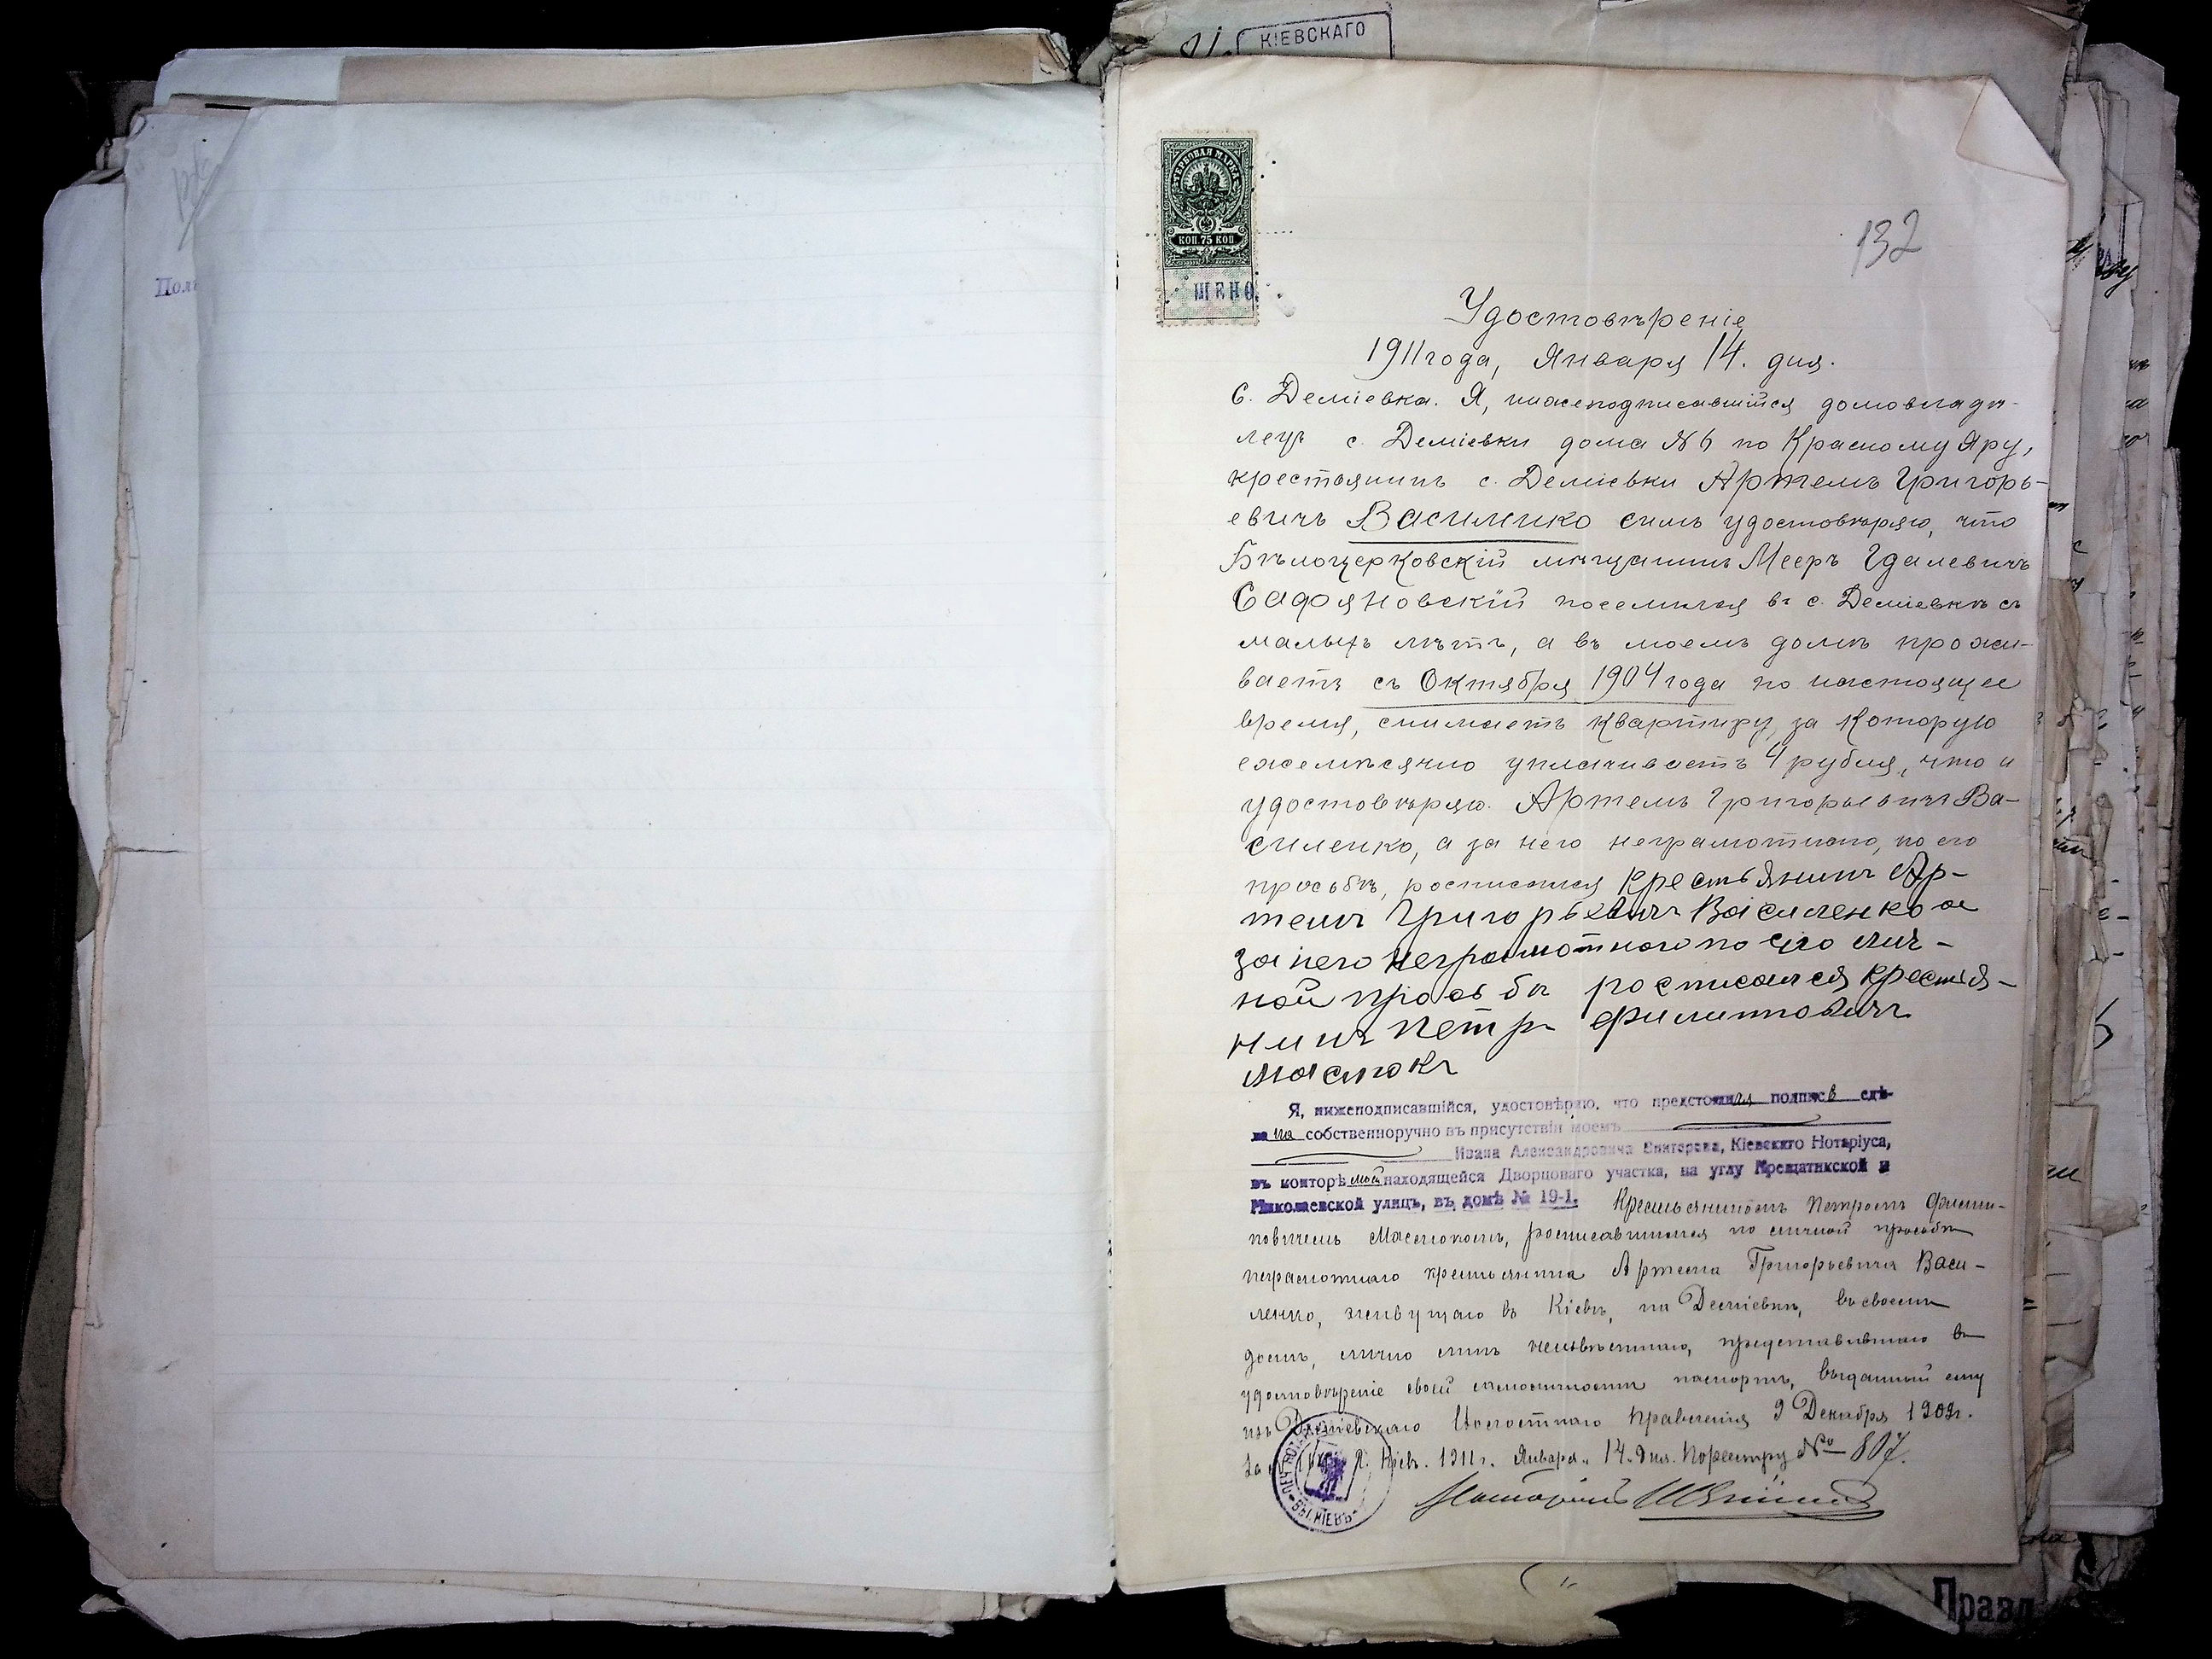 КІЕВСКАГО
ГЕРБОВАЯ МАРКА
КОП. 75 КОП
ШЕНО
132
Удостовѣреніе
1911 года, Января 14. дня.
с. Деміевка. Я, нижеподписавшійся домовладѣ-
лецъ с. Деміевки дома №6 по Красному Яру,
крестьянинъ с. Деміевки Артемъ Григорь-
евичъ Василенко симъ удостовѣряю, что
Бѣлоцерковскій мѣщанинъ Мееръ Гдалевичъ
Садояновскій поселился въ с. Деміевкѣ съ
малыхъ лѣтъ, а въ моемъ домѣ прожи-
ваетъ съ Октября 1904 года по настоящее
время, снимаетъ квартиру, за которую
ежемѣсячно уплачиваетъ 4 рубля, что и
удостовѣряю. Артемъ Григорьевичъ Ва-
силенко, а за него неграмотного, по его
просьбѣ, росписался Крестьянинъ Ар-
темъ Григорьевичъ Василенко а
за него неграмотного по его лич-
ной просьбѣ росписался крестья-
нинъ Петръ Филиповичъ
Мастокъ
Я, нижеподписавшійся, удостовѣряю, что предстоящая подпись сдѣ-
лана собственноручно въ присутствіи моемъ
Ивана Александровича Киевскаго Нотаріуса,
въ конторѣ моей находящейся Дворцоваго участка, на углу Крещатикской и
Николаевской улицъ, въ домѣ № 19-1. Крестьяниномъ Петромъ Фили-
повичемъ Мастокомъ, росписавшимся по личной просьбѣ
неграмотнаго крестьянина Артема Григорьевича Васи-
ленко, живущаго въ Кіевѣ, на Деміевкѣ, въ своемъ
домѣ, лично мнѣ неизвѣстнаго, представившаго въ
удостовѣреніе своей самоличности паспортъ, выданный ему
изъ Деміевскаго Волостнаго Правленія 9 Декабря 190
за № Г. Кіевъ. 1911 г. Января 14 дня. По реестру № 807.
Нотаріусъ
КІЕВЪ
Празд